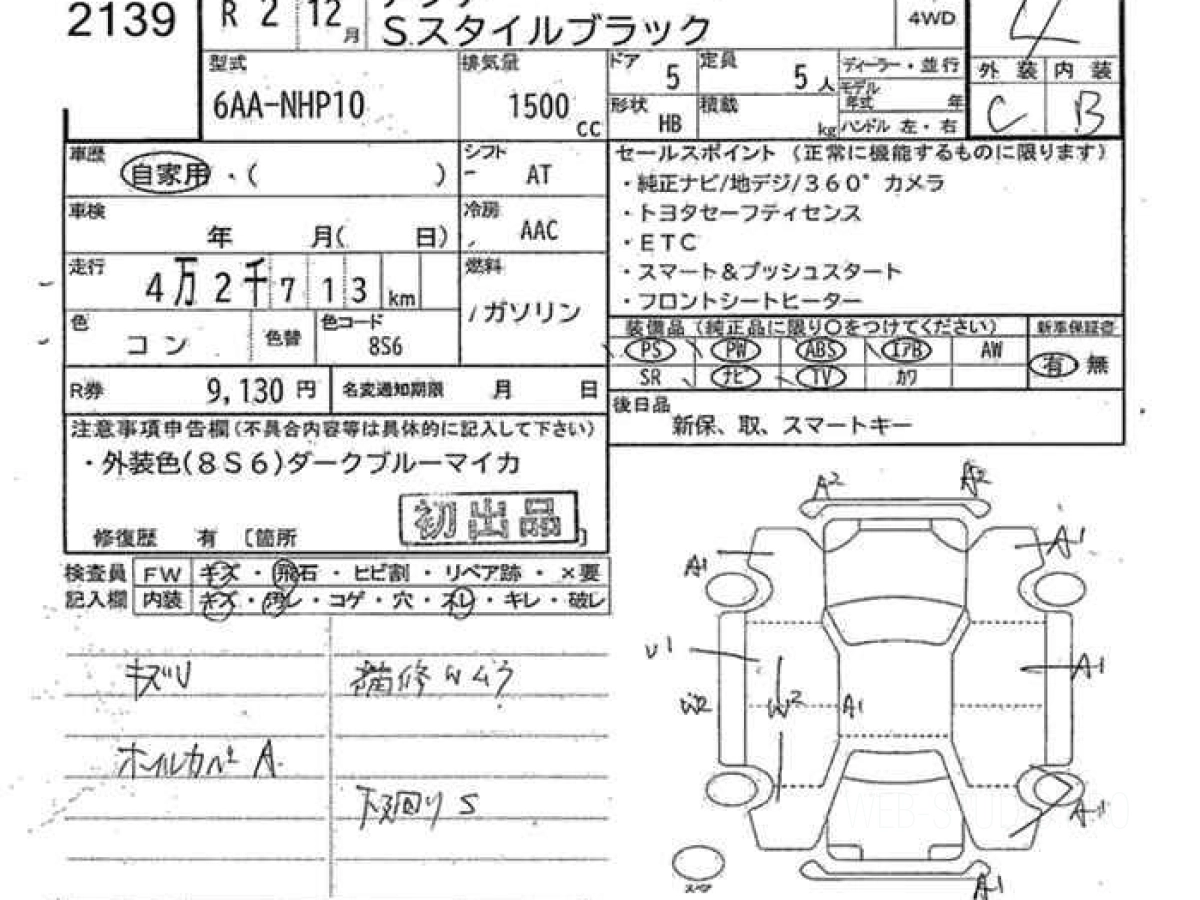 2139
R 2 12月
S.スタイルブラック
4WD
4
型式
6AA-NHP10
排気量
1500 cc
ドア 5
定員 5人
形状 HB
積載 kg
ディーラー・並行
モデル年式 年
ハンドル 左・右
外装 内装
C B
車歴
自家用・( )
シフト
AT
車検
年 月( 日)
冷房
AAC
走行
4万2千713km
燃料
ガソリン
色
コン
色替
色コード
8S6
R券 9,130 円
名変通知期限 月 日
セールスポイント (正常に機能するものに限ります)
・純正ナビ/地デジ/360°カメラ
・トヨタセーフティセンス
・ETC
・スマート&プッシュスタート
・フロントシートヒーター
装備品 (純正品に限り○をつけてください)
新車保証書
PS PW ABS エアB AW
SR ナビ TV カワ
有 無
後日品
新保、取、スマートキー
注意事項申告欄(不具合内容等は具体的に記入して下さい)
・外装色(8S6)ダークブルーマイカ
初出品
修復歴 有 [箇所 ]
検査員記入欄
FW キズ・飛石・ヒビ割・リペア跡・×要
内装 キズ・汚レ・コゲ・穴・スレ・キレ・破レ
キズU
補修Wムラ
ホイルカバー A
下廻り S
A2
A2
A1
A1
U1
A1
W2
W2
A1
A1
A1
スペア